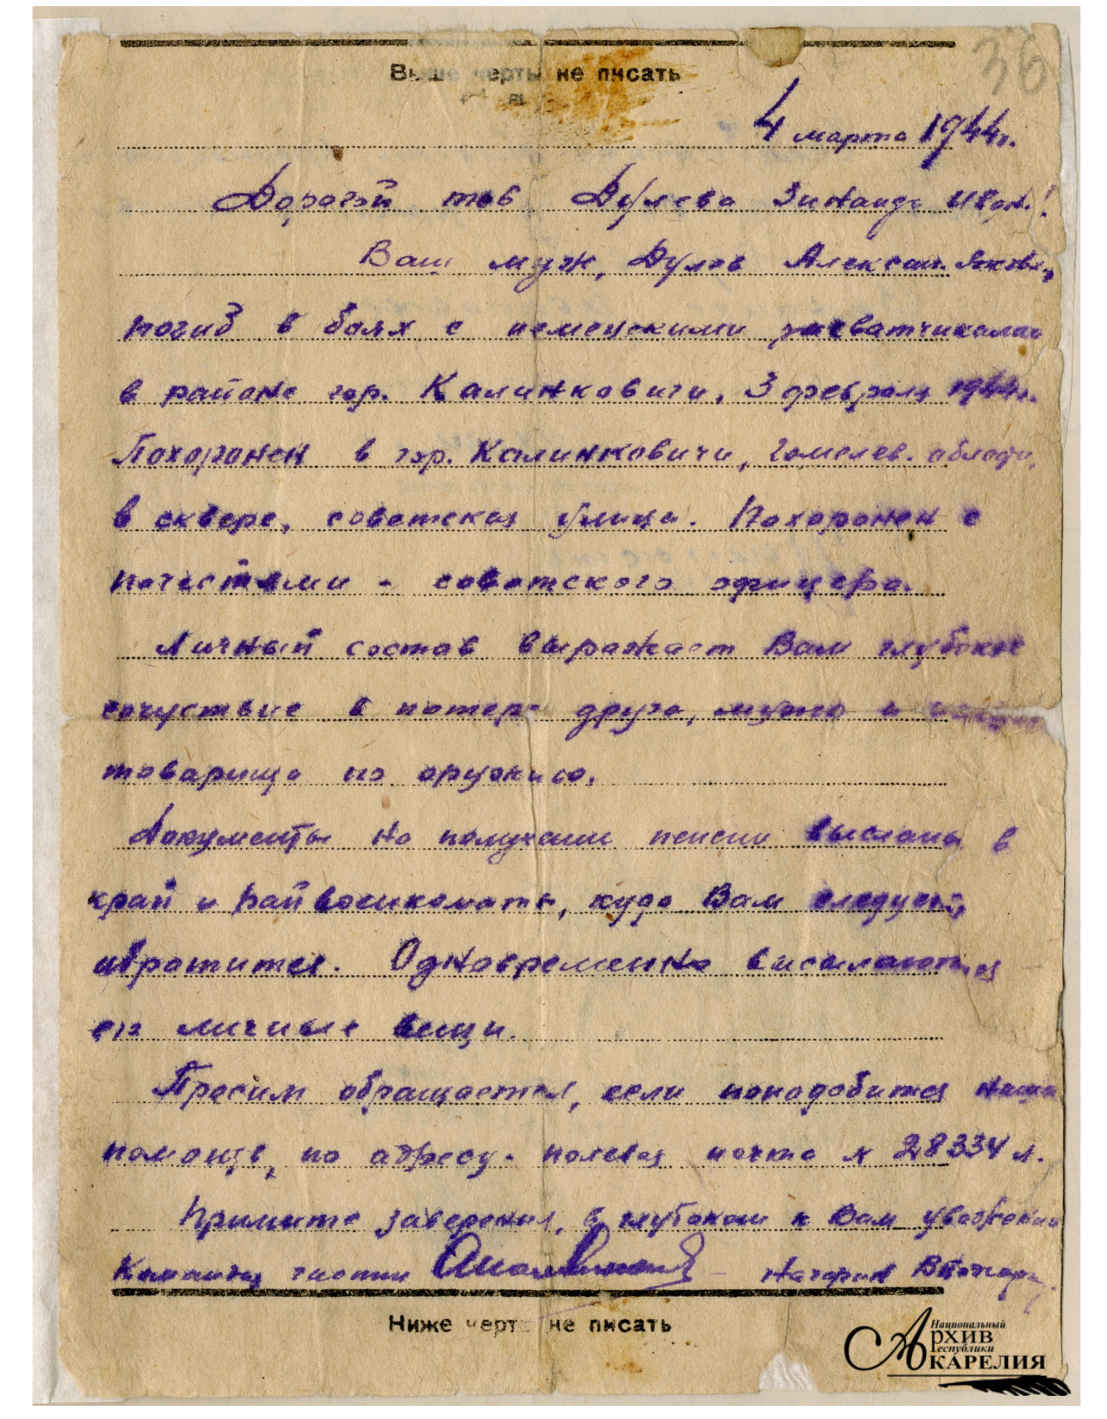 36
Выше черты не писать
4 марта 1944г.
Дорогой тов. Дулева Зинаида Иван.!
Ваш муж, Дулев Алексан. Яковл.,
погиб в боях с немецкими захватчиками
в районе гор. Калинковичи, 3 февраля 1944г.
Похоронен в гор. Калинковичи, Гомелев. области,
в сквере, советская улица. Похоронен с
почестями - советского офицера.
Личный состав выражает Вам глубокое
сочуствие в потере друга, мужа и
товарища по оружию.
Документы на получение пенсии высланы в
край и райвоенкоматы, куда Вам следует,
обратится. Одновременно высылаются
его личные вещи.
Просим обращается, если понадобится наша
помощь, по адресу - полевая почта № 28334 л.
Примите заверения, в глубоком к Вам уважении
Командир части
Ниже черты не писать
Национальный
Архив
Республики
Карелия